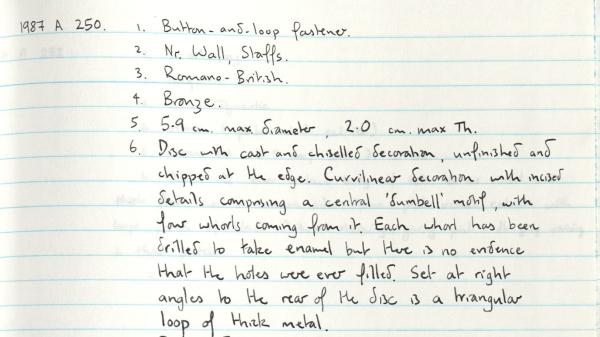 1987 A 250. 1. Button-and-loop fastener.
2. Nr. Wall, Staffs.
3. Romano-British.
4. Bronze.
5. 5.9 cm. max. diameter, 2.0 cm. max Th.
6. Disc with cast and chiselled decoration, unfinished and
chipped at the edge. Curvilinear decoration with incised
details comprising a central 'dumbell' motif, with
four whorls coming from it. Each whorl has been
drilled to take enamel but there is no evidence
that the holes were ever filled. Set at right
angles to the rear of the disc is a triangular
loop of thick metal.